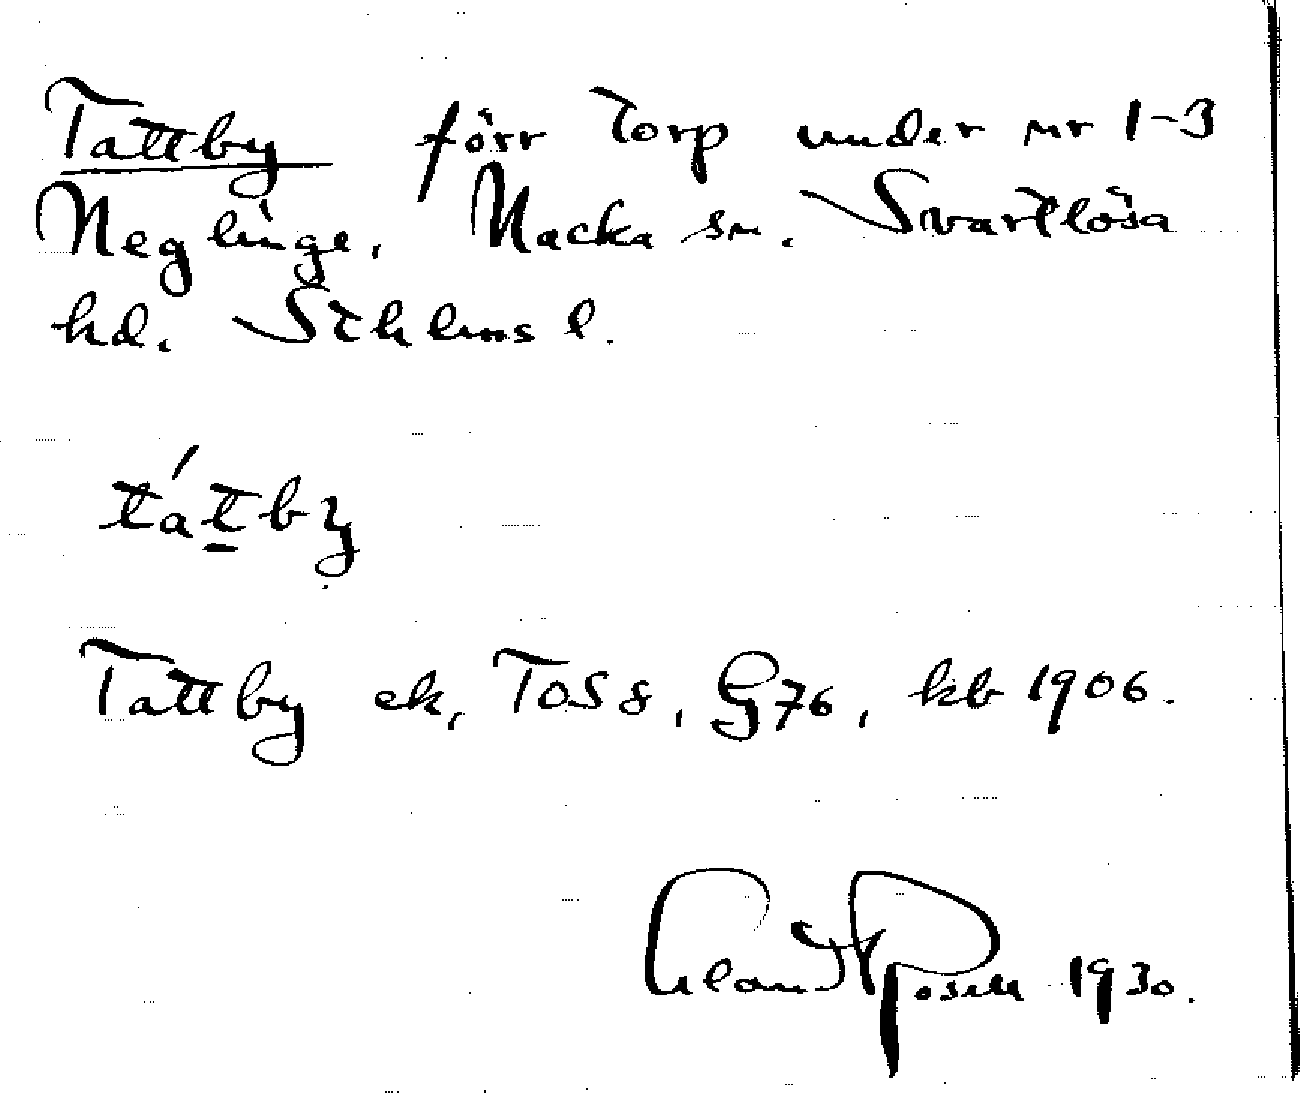 Tattby förr torp under nr 1-3
Neglinge, Nacka sn. Svartlösa
hd. Sthlms l.
tátby
Tattby ek, TOS 8, G76, kb 1906.
Rosell 1930.